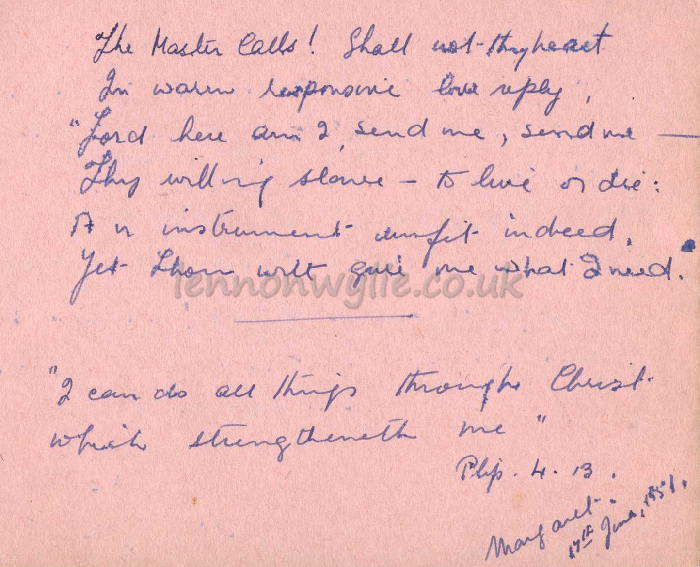 The Master Calls! Shall not thy heart
In warm responsive love reply,
"Lord here am I, send me, send me —
Thy willing slave — to live or die:
An instrument unfit indeed,
Yet Thou wilt give me what I need.
lennonwylie.co.uk
"I can do all things through Christ
which strengtheneth me"
Philp. 4. 13.
Margaret.
17th June, 1951.